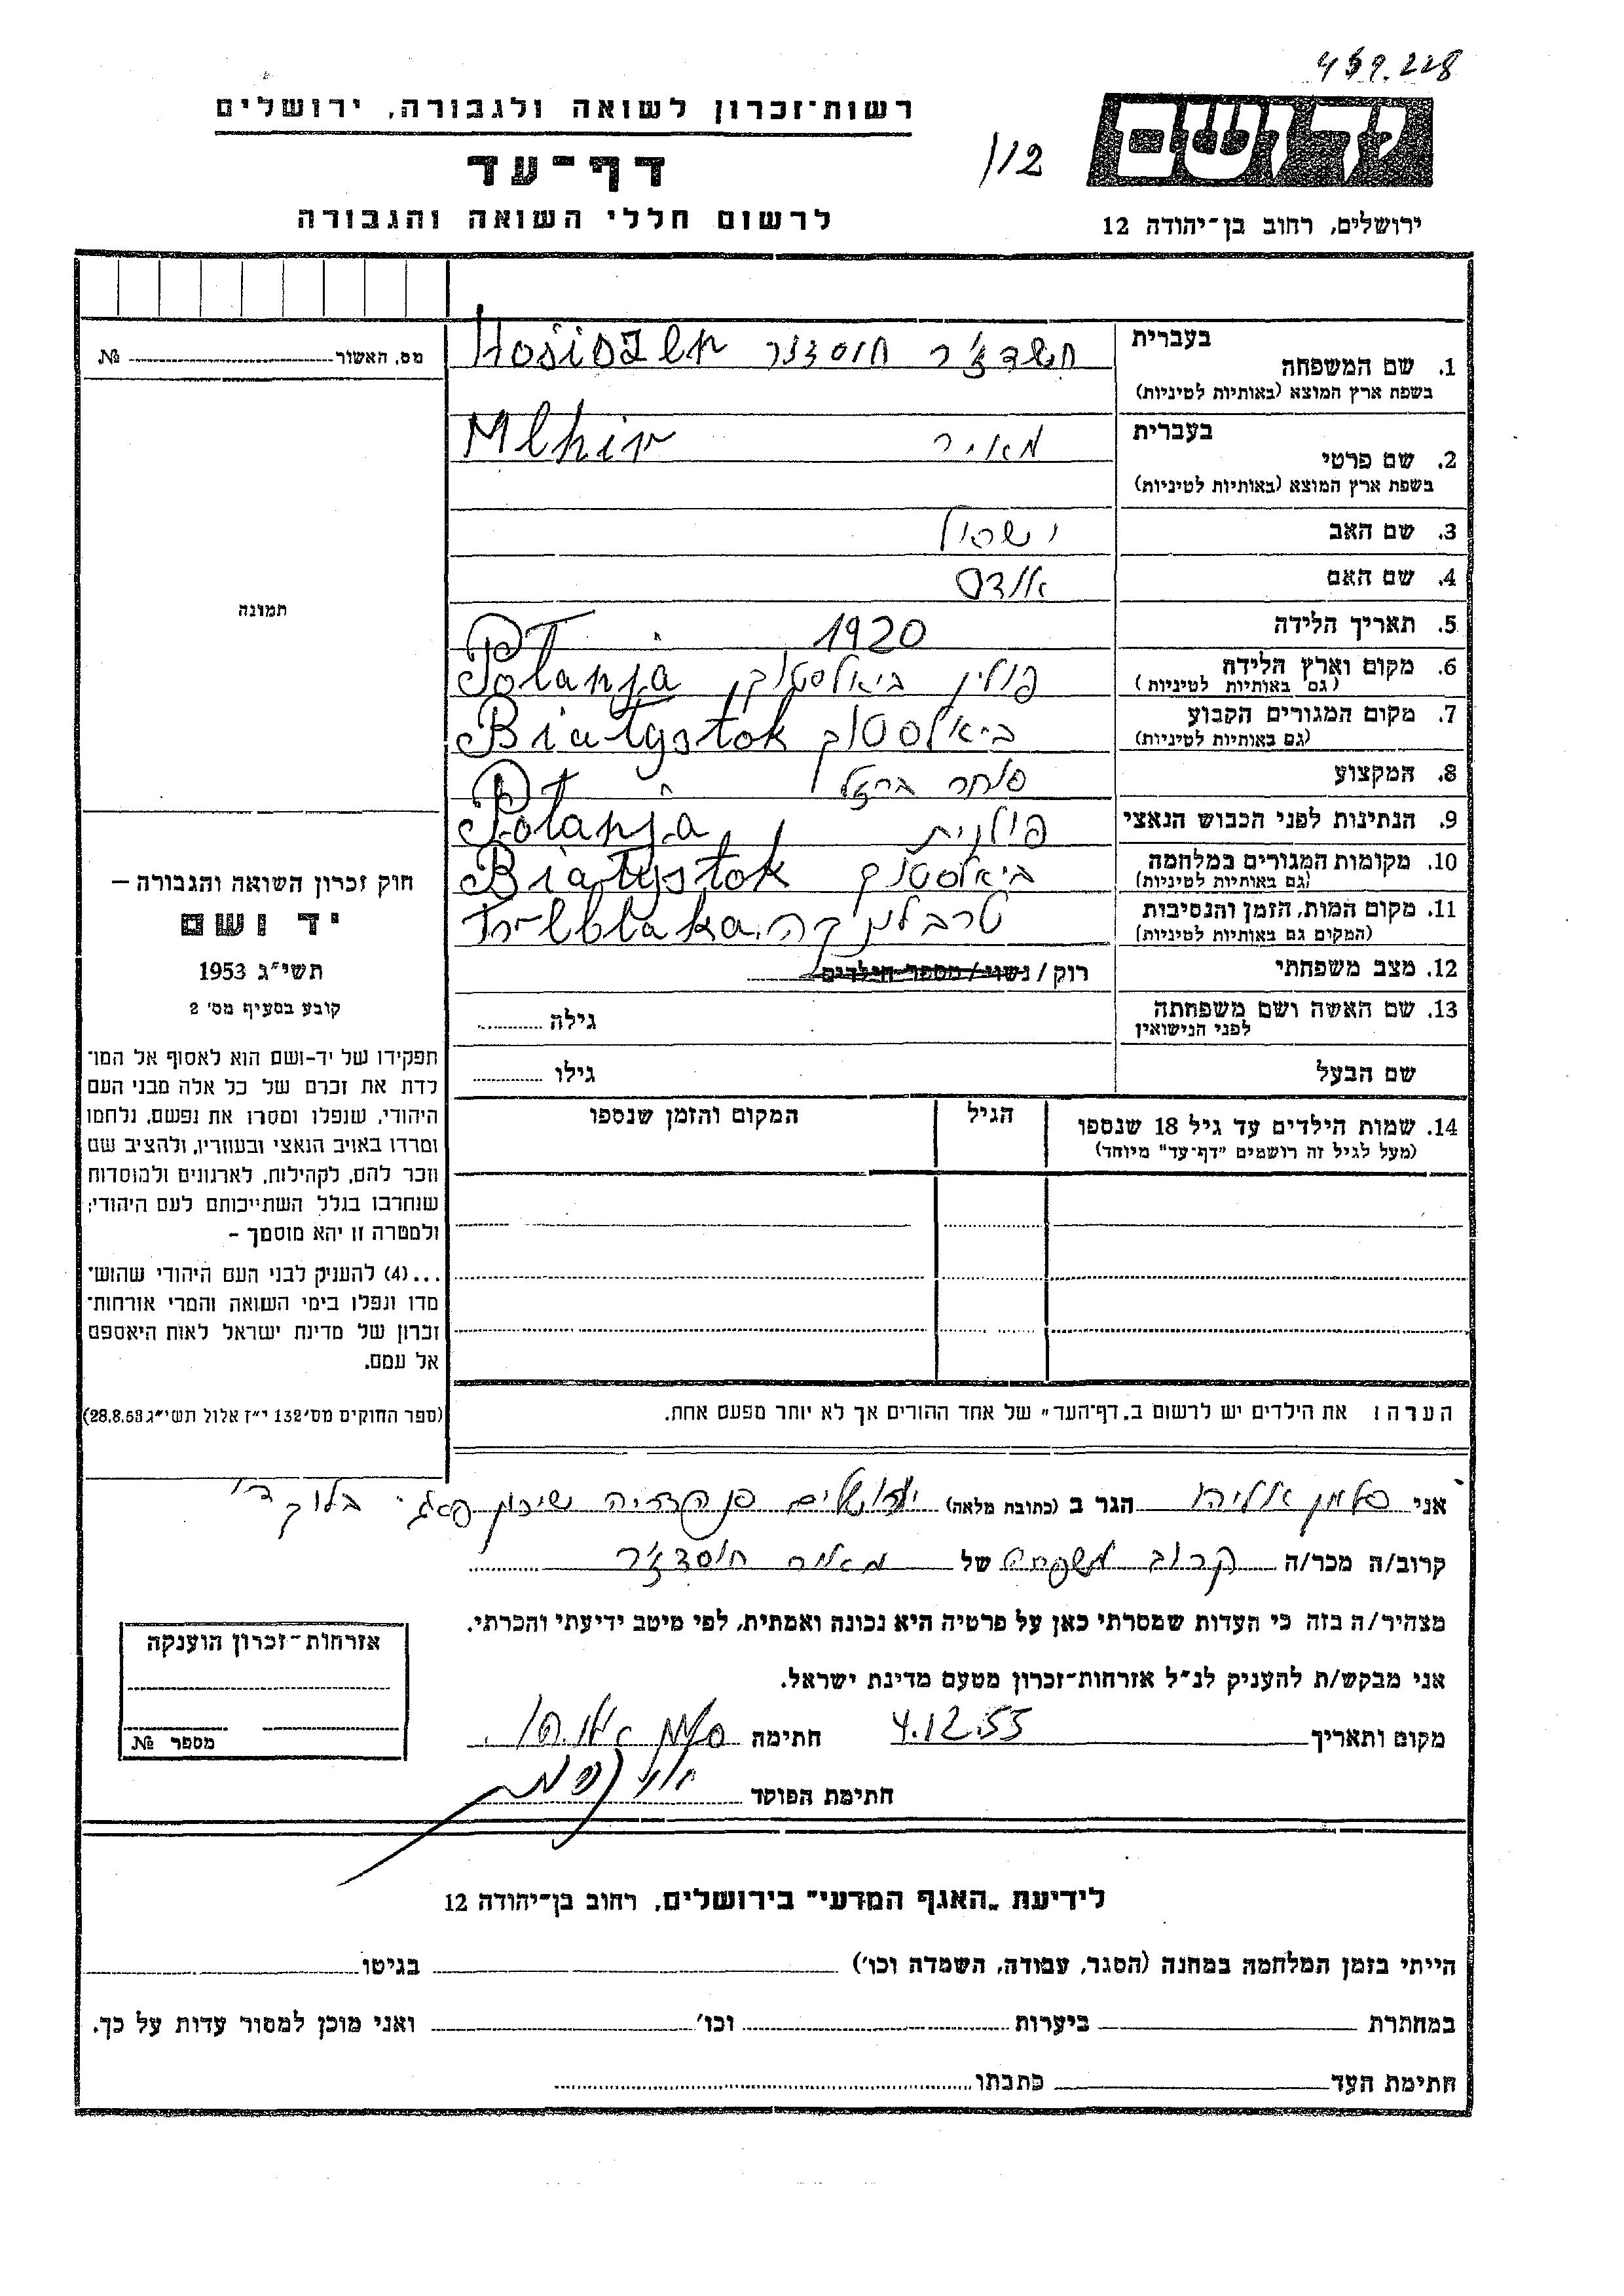 459.228
רשות־זכרון לשואה ולגבורה, ירושלים
דף־עד
לרשום חללי השואה והגבורה
112
ידושם
ירושלים, רחוב בן־יהודה 12
מס. האשור № 
תמונה
חוק זכרון השואה והגבורה —
יד ושם
תשי״ג 1953
קובע בסעיף מס׳ 2
תפקידו של יד-ושם הוא לאסוף אל המו־
לדת את זכרם של כל אלה מבני העם
היהודי, שנפלו ומסרו את נפשם, נלחמו
ומרדו באויב הנאצי ובעוזריו, ולהציב שם
וזכר להם, לקהילות, לארגונים ולמוסדות
שנחרבו בגלל השתייכותם לעם היהודי;
ולמטרה זו יהא מוסמך –
...(4) להעניק לבני העם היהודי שהוש־
מדו ונפלו בימי השואה והמרי אזרחות־
זכרון של מדינת ישראל לאות היאספם
אל עמם.
(ספר החוקים מס׳ 132 י״ז אלול תשי״ג 28.8.53)
בעברית
1. שם המשפחה
בשפת ארץ המוצא (באותיות לטיניות)
חוסדנר
בעברית
2. שם פרטי מאיר Mehir
בשפת ארץ המוצא (באותיות לטיניות)
3. שם האב ישראל
4. שם האם
5. תאריך הלידה 1920
6. מקום וארץ הלידה פולין ביאלסטוק Polanja
(גם באותיות לטיניות)
7. מקום המגורים הקבוע ביאלסטוק Białystok
(גם באותיות לטיניות)
8. המקצוע סוחר ברזל
9. הנתינות לפני הכבוש הנאצי פולנית Polanja
10. מקומות המגורים במלחמה ביאלסטוק Białystok
(גם באותיות לטיניות)
11. מקום המות, הזמן והנסיבות טרבלינקה Treblinka
(המקום גם באותיות לטיניות)
12. מצב משפחתי רוק / נשוי / מספר הילדים
13. שם האשה ושם משפחתה גילה
לפני הנישואין
שם הבעל גילו
14. שמות הילדים עד גיל 18 שנספו הגיל המקום והזמן שנספו
(מעל לגיל זה רושמים "דף־עד" מיוחד)
הערה: את הילדים יש לרשום ב„דף־העד״ של אחד ההורים אך לא יותר מפעם אחת.
אני אליהו הגר ב (כתובת מלאה) ירושלים שיכון בלוק
קרוב/ה מכר/ה קרוב משפחה של מאיר
מצהיר/ה בזה כי העדות שמסרתי כאן על פרטיה היא נכונה ואמתית, לפי מיטב ידיעתי והכרתי.
אני מבקש/ת להעניק לנ״ל אזרחות־זכרון מטעם מדינת ישראל.
מקום ותאריך 4.12.55 חתימה
חתימת הפוקד
אזרחות־זכרון הוענקה
מספר №
לידיעת „האגף המדעי״ בירושלים, רחוב בן־יהודה 12
הייתי בזמן המלחמה במחנה (הסגר, עבודה, השמדה וכו׳) בגיטו
במחתרת ביערות וכו׳ ואני מוכן למסור עדות על כך.
חתימת העד כתבתו